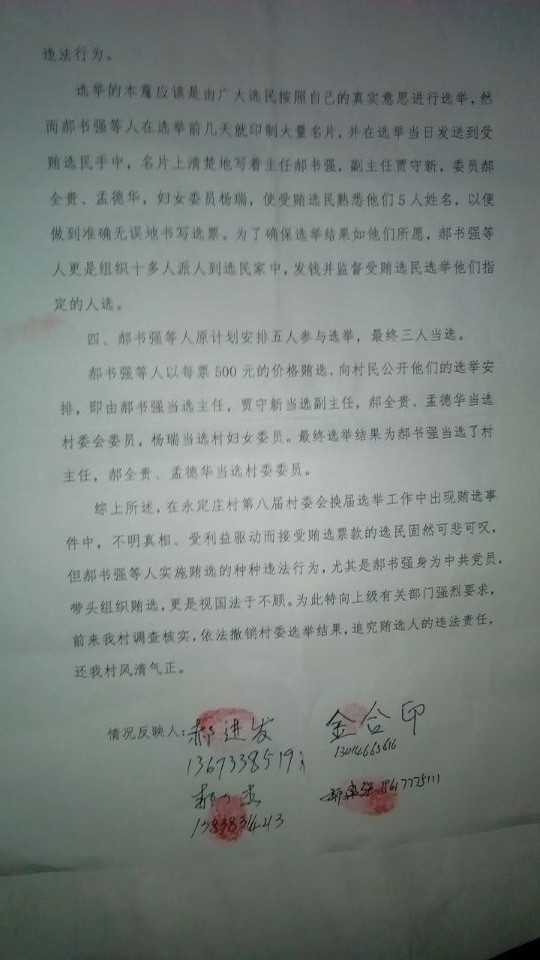 违法行为。
选举的本意应该是由广大选民按照自己的真实意思进行选举，然
而郝书强等人在选举前几天就印制大量名片，并在选举当日发送到受
贿选民手中，名片上清楚地写着主任郝书强，副主任贾守新，委员郝
全贵、孟德华，妇女委员杨瑞，使受贿选民熟悉他们5人姓名，以便
做到准确无误地书写选票。为了确保选举结果如他们所愿，郝书强等
人更是组织十多人派人到选民家中，发钱并监督受贿选民选举他们指
定的人选。
四、郝书强等人原计划安排五人参与选举，最终三人当选。
郝书强等人以每票500元的价格贿选，向村民公开他们的选举安
排，即由郝书强当选主任，贾守新当选副主任，郝全贵、孟德华当选
村委会委员，杨瑞当选村妇女委员。最终选举结果为郝书强当选了村
主任，郝全贵、孟德华当选村委委员。
综上所述，在永定庄村第八届村委会换届选举工作中出现贿选事
件中，不明真相、受利益驱动而接受贿选票款的选民固然可悲可叹，
但郝书强等人实施贿选的种种违法行为，尤其是郝书强身为中共党员，
带头组织贿选，更是视国法于不顾。为此特向上级有关部门强烈要求，
前来我村调查核实，依法撤销村委选举结果，追究贿选人的违法责任，
还我村风清气正。
情况反映人：郝进发 金合印
13014665616